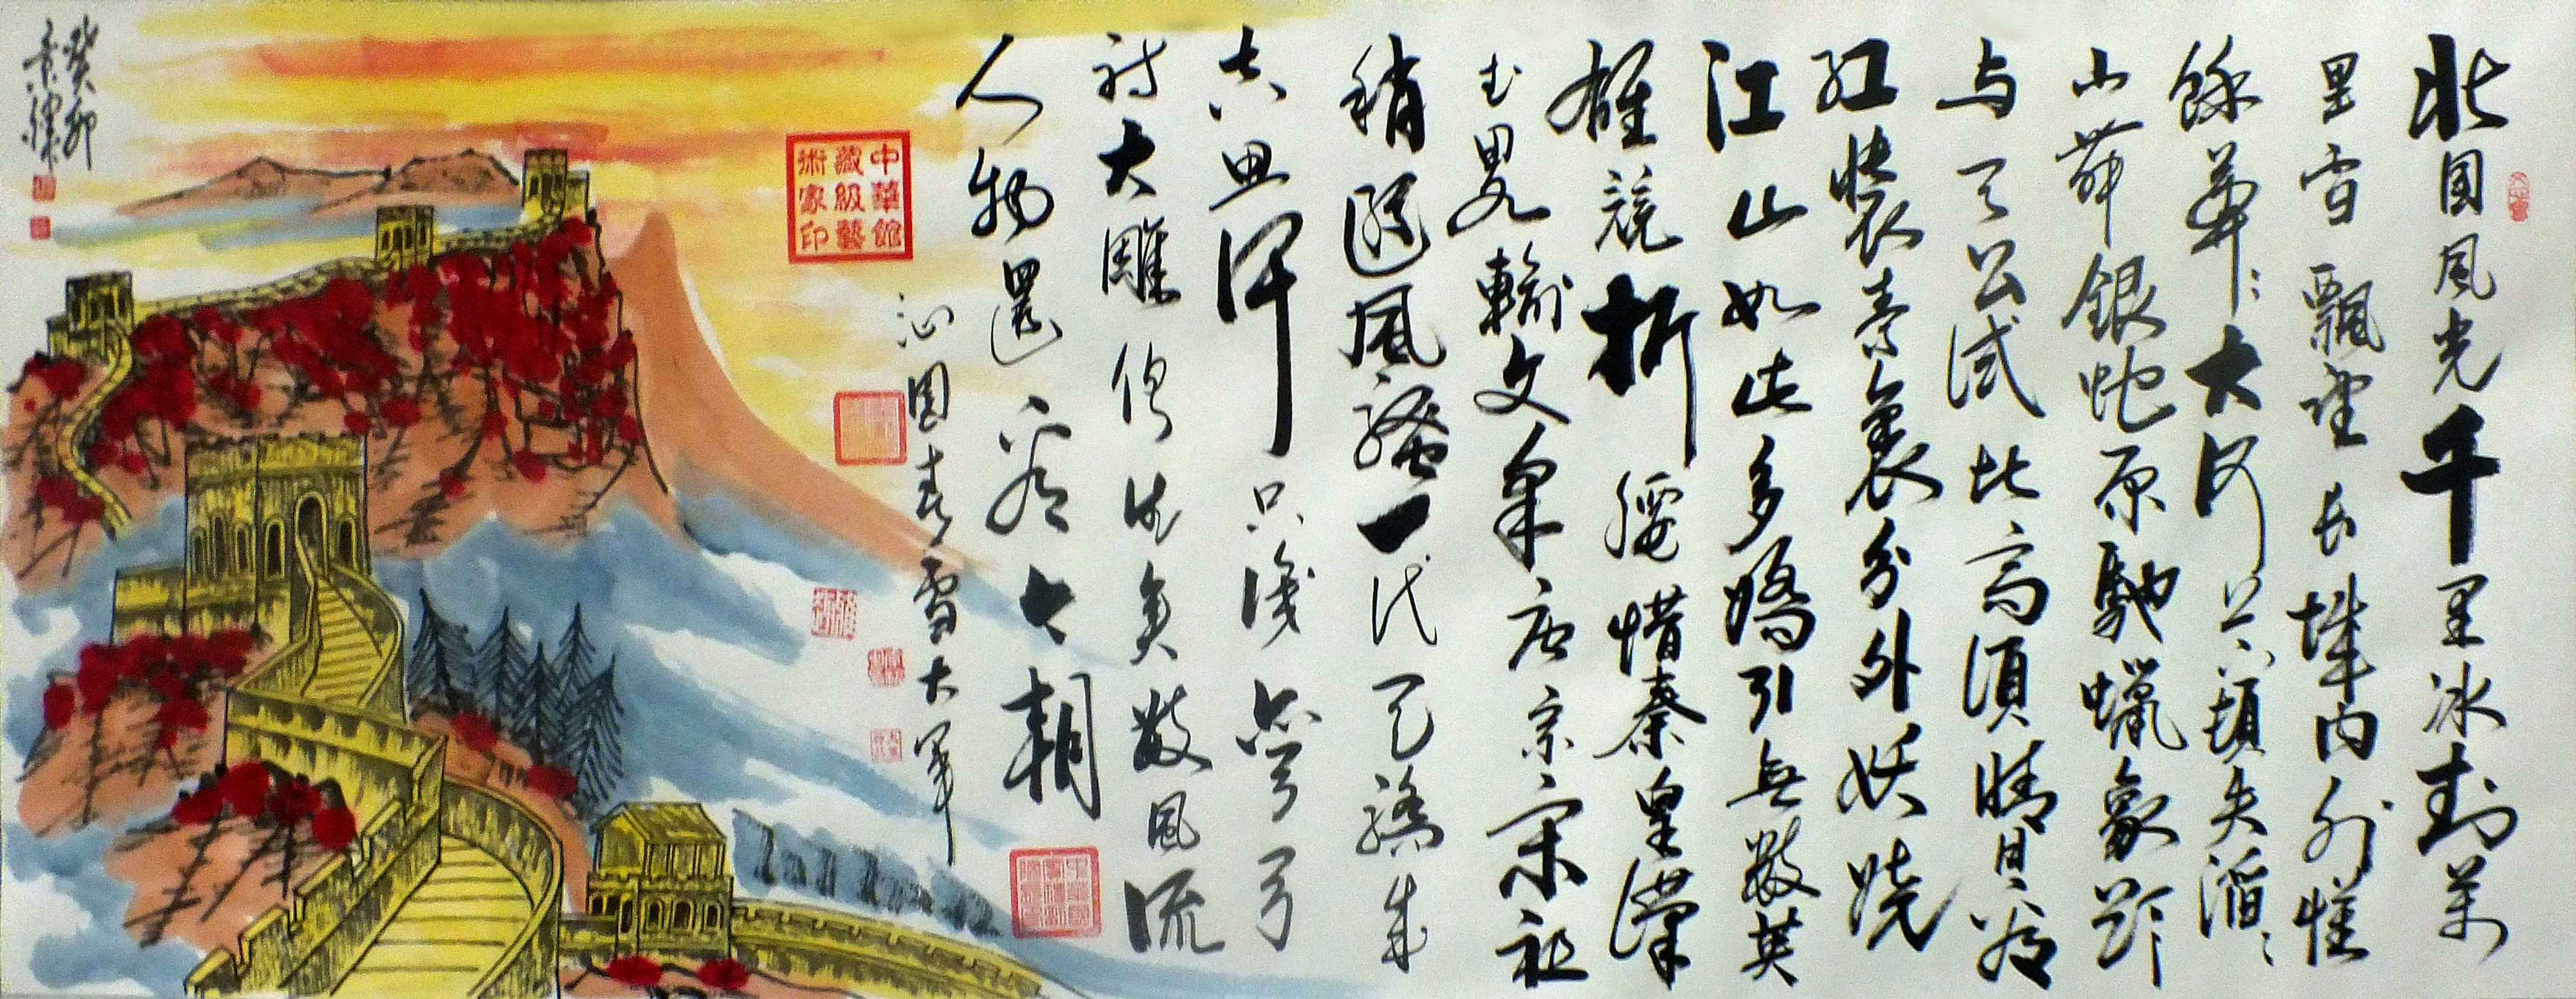 北国风光千里冰封萬
里雪飄望长城内外惟
餘莽々大河上下頓失滔々
山舞銀蛇原馳蠟象欲
与天公试比高須晴日看
红裝素裹分外妖娆
江山如此多嬌引無数英
雄競折腰惜秦皇漢
武略輸文采唐宗宋祖
稍逊風騷一代天驕成
吉思汗只識弯弓
射大雕俱往矣数風流
人物還看今朝
沁园春雪大军
中華館
藏級藝
術家印
癸卯